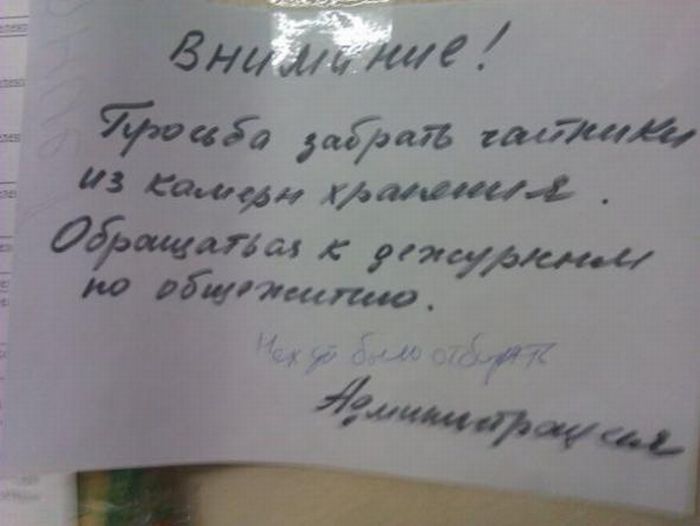 Внимание!
Просьба забрать чайники
из камеры хранения.
Обращаться к дежурным
по общежитию.
Нахуй было отбирать
Администрация